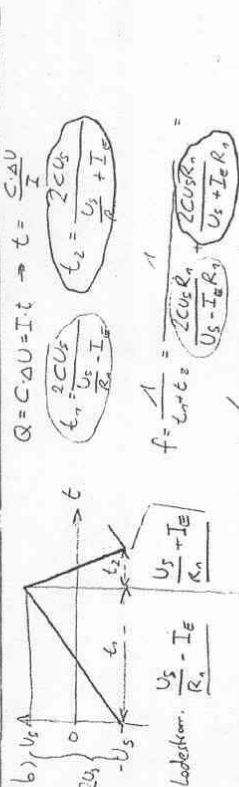 b)
U_S
0
-U_S
2U_S
t
t_1
t_2
Ladestrom. U_S/R_1 - I_E
U_S/R_1 + I_E
Q = C·ΔU = I·t → t = C·ΔU/I
t_1 = 2CU_S/(U_S/R_1 - I_E)
t_2 = 2CU_S/(U_S/R + I_E)
f = 1/(t_1+t_2) = 1/(2CU_SR_1/(U_S - I_ER_1) + 2CU_SR_1/(U_S + I_ER_1)) =